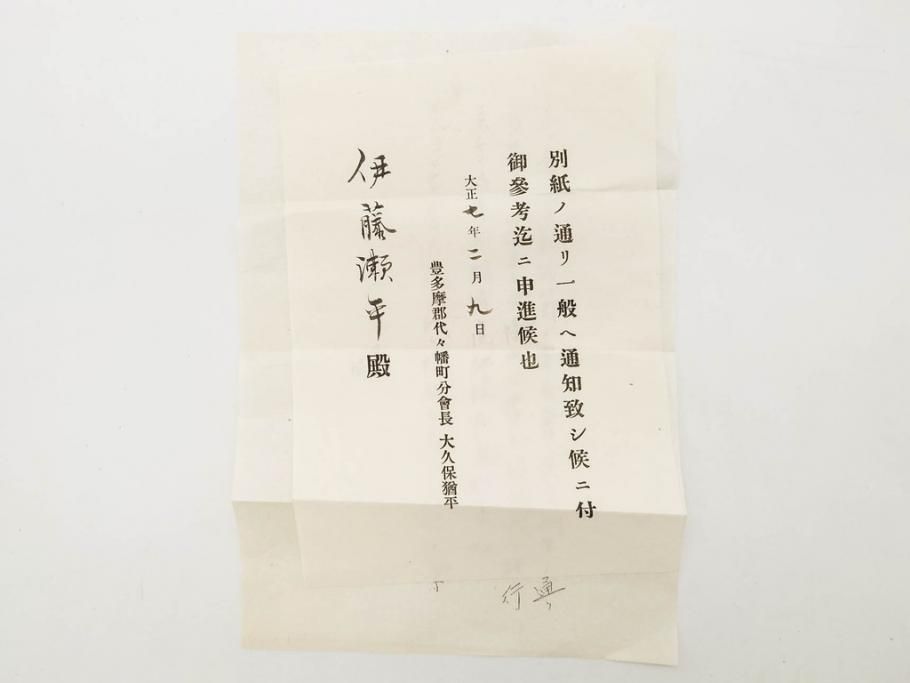 別紙ノ通リ一般ヘ通知致シ候ニ付
御參考迄ニ申進候也
大正七年二月九日
豊多摩郡代々幡町分會長 大久保猶平
伊藤瀬平殿
通リ
行